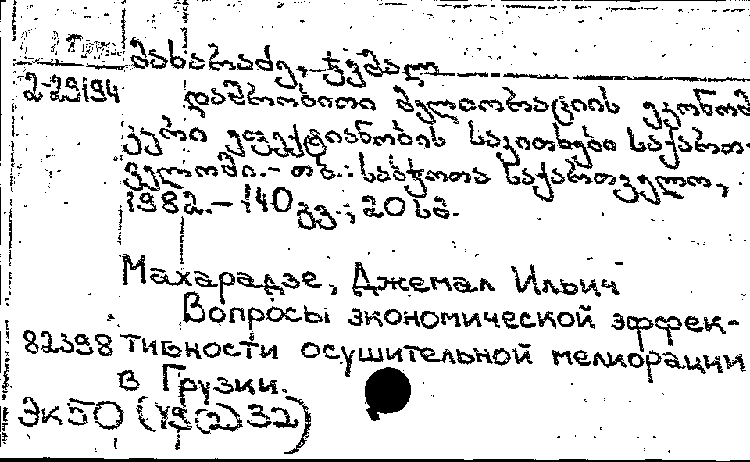 მახარაძე, ჯემალ
2-29194 დაშრობითი მელიორაციის ეკონომი
კური ეფექტიანობის საკითხები საქართ-
ველოში.- თბ.: საბჭოთა საქართველო,
1982.- 140 გვ.; 20 სმ.
Махарадзе, Джемал Ильич
Вопросы экономической эффек-
82398 тивности осушительной мелиорации
в Грузии.